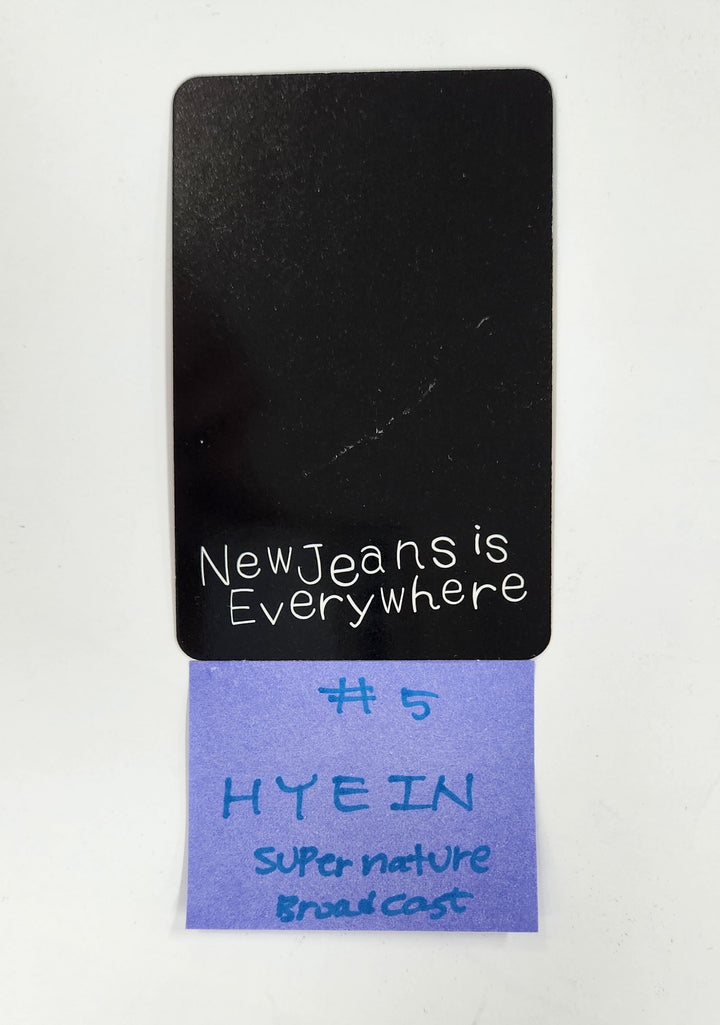 NewJeans is
Everywhere
# 5
HYEIN
Super nature
Broadcast